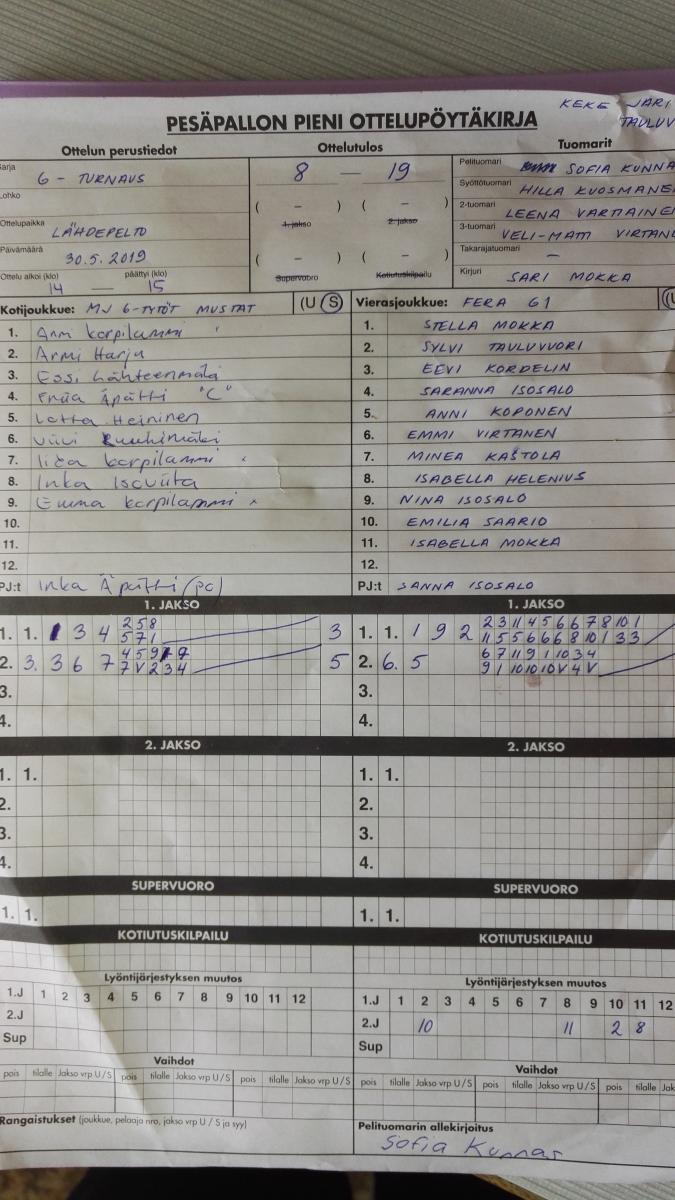 KEKE JARI
TAULUV
PESÄPALLON PIENI OTTELUPÖYTÄKIRJA
Ottelun perustiedot
Ottelutulos
Tuomarit
Sarja G - TURNAUS
8 — 19
Pelituomari SOFIA KUNNA
Lohko
Syöttötuomari HILLA KUOSMANE
( – ) ( – )
1. jakso 2. jakso
2-tuomari LEENA VARTIAINE
Ottelupaikka LÄHDEPELTO
3-tuomari VELI-MATTI VIRTAN
Päivämäärä 30.5.2019
( – ) ( – )
Takarajatuomari –
Ottelu alkoi (klo) päättyi (klo)
14 — 15
Supervuoro Kotiutuskilpailu
Kirjuri SARI MOKKA
Kotijoukkue: MJ G-TYTÖT MUSTAT (U S)
Vierasjoukkue: FERA G1 (U
1. Anni korpilammi
2. Armi Harju
3. Essi Lähteenmäki
4. Äpätti "C"
5. Lotta Heininen
6. Viivi Ruuhimäki
7. Iida korpilammi
8. Inka Isoviita
9. Emma korpilammi
10.
11.
12.
PJ:t Inka Äpätti (pj)
1. STELLA MOKKA
2. SYLVI TAULUVUORI
3. EEVI KORDELIN
4. SARANNA ISOSALO
5. ANNI KOPONEN
6. EMMI VIRTANEN
7. MINEA KASTOLA
8. ISABELLA HELENIUS
9. NINA ISOSALO
10. EMILIA SAARIO
11. ISABELLA MOKKA
12.
PJ:t SANNA ISOSALO
1. JAKSO
1. 1. 1 3 4 2 5 8 3
5 7 1
2. 3. 3 6 7 4 5 9 9 5
7 V 2 3 4
3.
4.
1. JAKSO
1. 1. 1 9 2 2 3 11 4 5 6 6 7 8 10 1
11 5 5 6 6 6 8 10 1 3 3
2. 6. 5 6 7 11 9 1 10 3 4
9 1 10 10 10 V 4 V
3.
4.
2. JAKSO
1. 1.
2.
3.
4.
2. JAKSO
1. 1.
2.
3.
4.
SUPERVUORO
1. 1.
SUPERVUORO
1. 1.
KOTIUTUSKILPAILU
KOTIUTUSKILPAILU
Lyöntijärjestyksen muutos
1.J 1 2 3 4 5 6 7 8 9 10 11 12
2.J
Sup
Lyöntijärjestyksen muutos
1.J 1 2 3 4 5 6 7 8 9 10 11 12
2.J 10 11 2 8
Sup
Vaihdot
pois tilalle Jakso vrp U/S pois tilalle Jakso vrp U/S pois tilalle Jakso vrp U/S
Vaihdot
pois tilalle Jakso vrp U/S pois tilalle Jakso vrp U/S pois tilalle Jak
Rangaistukset (joukkue, pelaaja nro, jakso vrp U / S ja syy)
Pelituomarin allekirjoitus
Sofia Kunnas